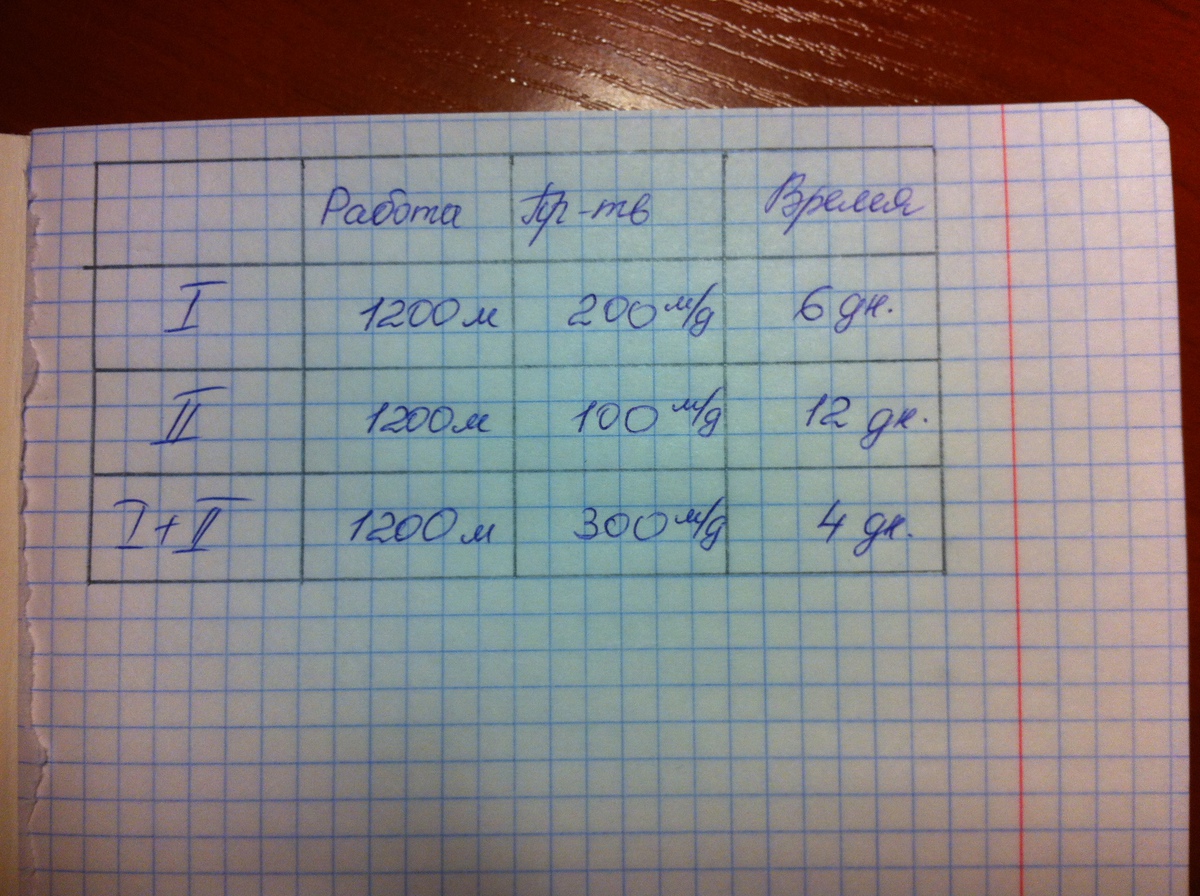 Работа Пр-тв Время
I 1200 м 200 м/д 6 дн.
II 1200 м 100 м/д 12 дн.
I + II 1200 м 300 м/д 4 дн.